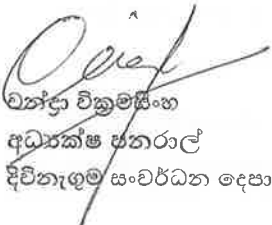 චන්ද්‍රා වික්‍රමසිංහ
අධ්‍යක්ෂ ජනරාල්
දිවිනැගුම සංවර්ධන දෙපා